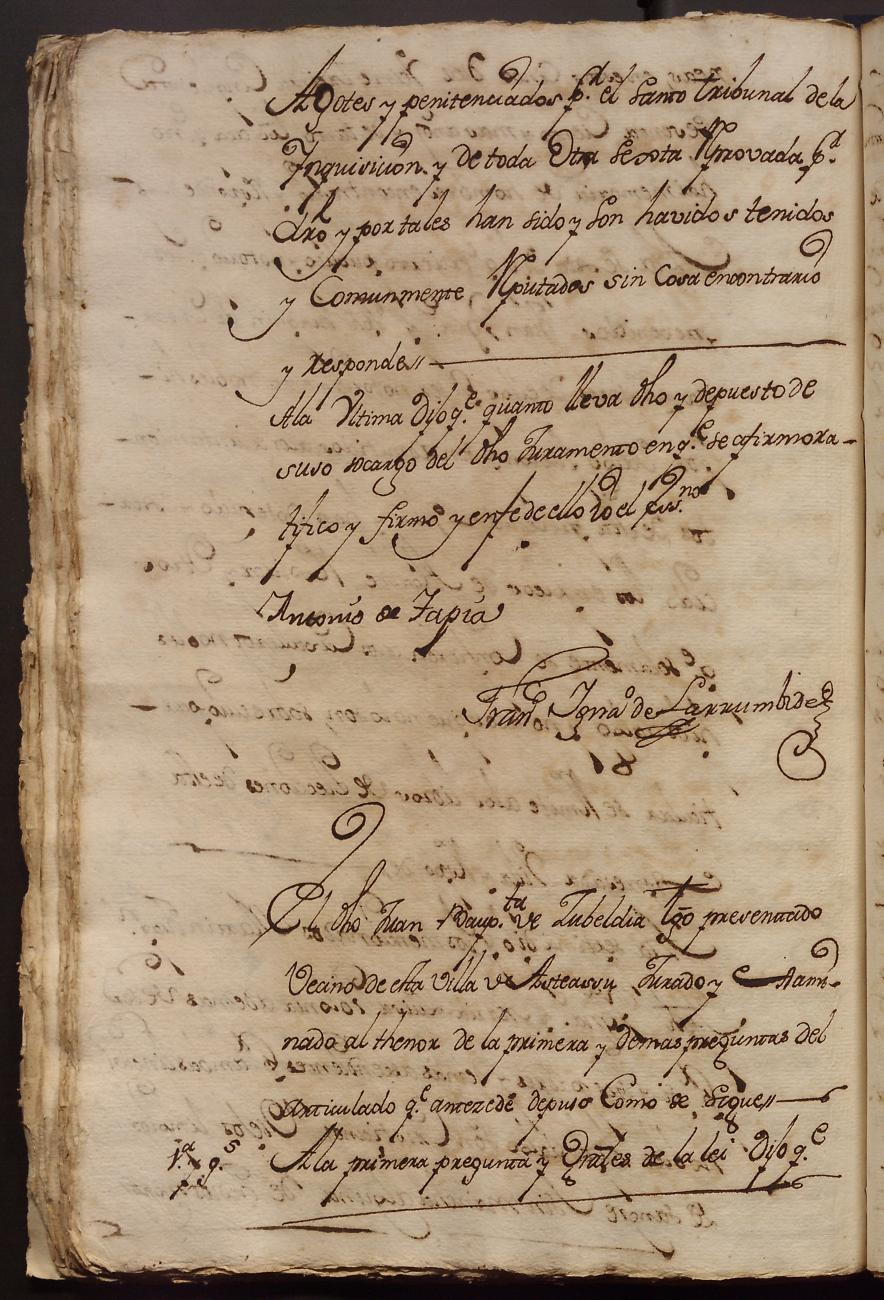 Agotes y penitenciados p.r el Santo tribunal de la
Ynquisicion y de toda otra secta Reprovada p.r
dro y por tales han sido y son havidos tenidos
y Comunmente Reputados sin Cosa encontrario
y responde//
Ala Vltima Dijo q.e quanto lleva dho y depuesto de
suso socargo del dho Juramento en q.e se afirmo ra-
tifico y firmó y enfe de ello Yo el ess.no
Antonio de Tapia
Fran.co Ygna.o de Larrumbide
El dho Juan Baup.ta de Zubeldia tgo presentado
Vecino de esta Villa de Asteassu Jurado y exsami-
nado al thenor de la primera y demas preguntas del
articulado q.e antezede depuso Como se Sigue//
1.a y g.s Ala primera pregunta y Grales de la lei Dijo q.e